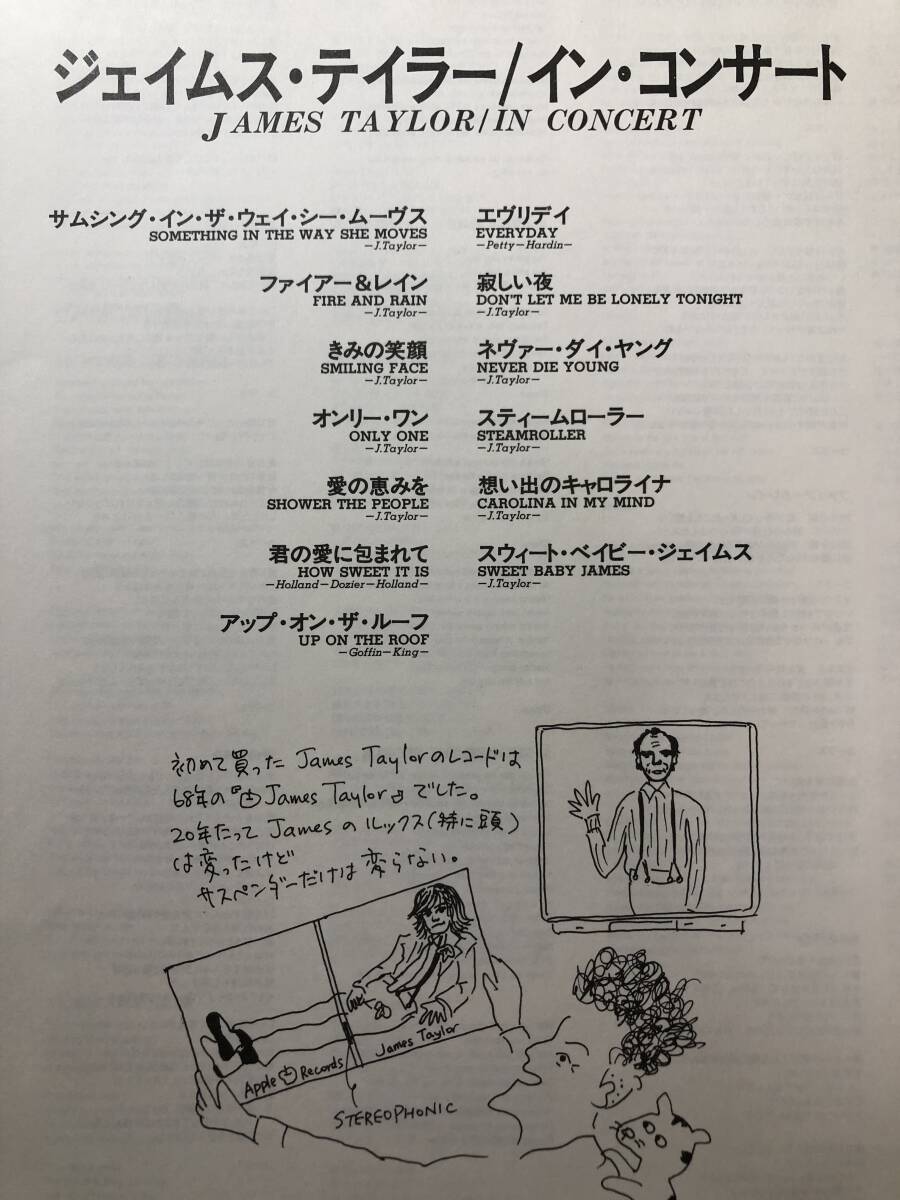 ジェイムス・テイラー/イン・コンサート
JAMES TAYLOR/IN CONCERT
サムシング・イン・ザ・ウェイ・シー・ムーヴス
SOMETHING IN THE WAY SHE MOVES
—J.Taylor—
ファイアー&レイン
FIRE AND RAIN
—J.Taylor—
きみの笑顔
SMILING FACE
—J.Taylor—
オンリー・ワン
ONLY ONE
—J.Taylor—
愛の恵みを
SHOWER THE PEOPLE
—J.Taylor—
君の愛に包まれて
HOW SWEET IT IS
—Holland—Dozier—Holland—
アップ・オン・ザ・ルーフ
UP ON THE ROOF
—Goffin—King—
エヴリデイ
EVERYDAY
—Petty—Hardin—
寂しい夜
DON'T LET ME BE LONELY TONIGHT
—J.Taylor—
ネヴァー・ダイ・ヤング
NEVER DIE YOUNG
—J.Taylor—
スティームローラー
STEAMROLLER
—J.Taylor—
想い出のキャロライナ
CAROLINA IN MY MIND
—J.Taylor—
スウィート・ベイビー・ジェイムス
SWEET BABY JAMES
—J.Taylor—
初めて買った James Taylorのレコードは
68年の『James Taylor』でした。
20年たって Jamesのルックス(特に頭)
は変ったけど
サスペンダーだけは変らない。
Apple Records
James Taylor
STEREOPHONIC